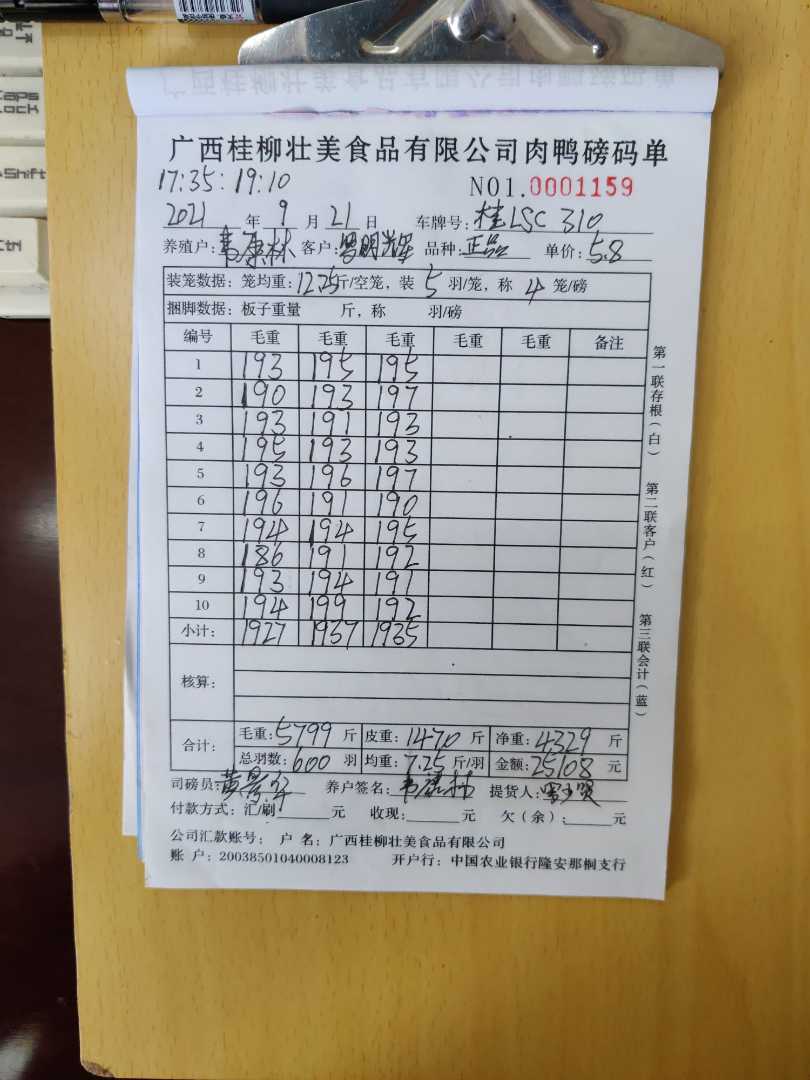 Caps
Lock
Shift
广西桂柳壮美食品有限公司肉鸭磅码单
17:35:19:10
NO1.0001159
2021 年 9 月 21 日 车牌号:桂LSC 310
养殖户:韦康林 客户:曾明辉 品种:正品 单价:5.8
装笼数据:笼均重:12.25斤/空笼,装 5 羽/笼,称 4 笼/磅
捆脚数据:板子重量 斤,称 羽/磅
编号 毛重 毛重 毛重 毛重 毛重 备注
1 193 195 195
2 190 193 197
3 193 191 193
4 195 193 193
5 193 196 197
6 196 191 190
7 194 194 195
8 186 191 192
9 193 194 191
10 194 199 192
小计: 1927 1937 1935
核算:
合计: 毛重:5799 斤 皮重:1470 斤 净重:4329 斤
总羽数:600 羽 均重:7.25斤/羽 金额:25108 元
司磅员: 养户签名:韦康林 提货人:
付款方式:汇/刷 元 收现: 元 欠(余): 元
公司汇款账号: 户 名:广西桂柳壮美食品有限公司
账 户:20038501040008123 开户行:中国农业银行隆安那桐支行
第一联存根(白) 第二联客户(红) 第三联会计(蓝)